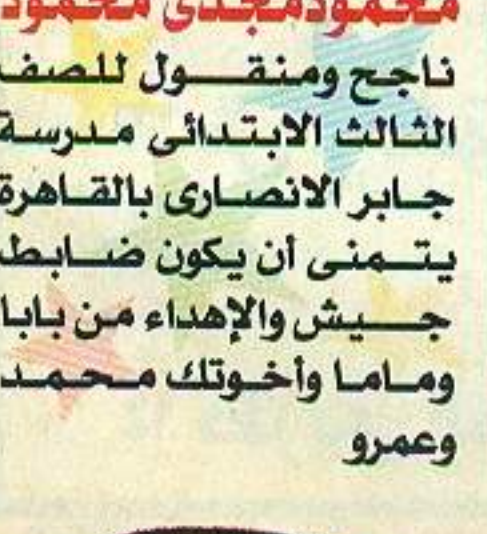 محمود مجدى محمود
ناجح ومنقول للصف
الثالث الابتدائى مدرسة
جابر الانصارى بالقاهرة
يتمنى أن يكون ضابط
جيش والإهداء من بابا
وماما وأخوتك محمد
وعمرو